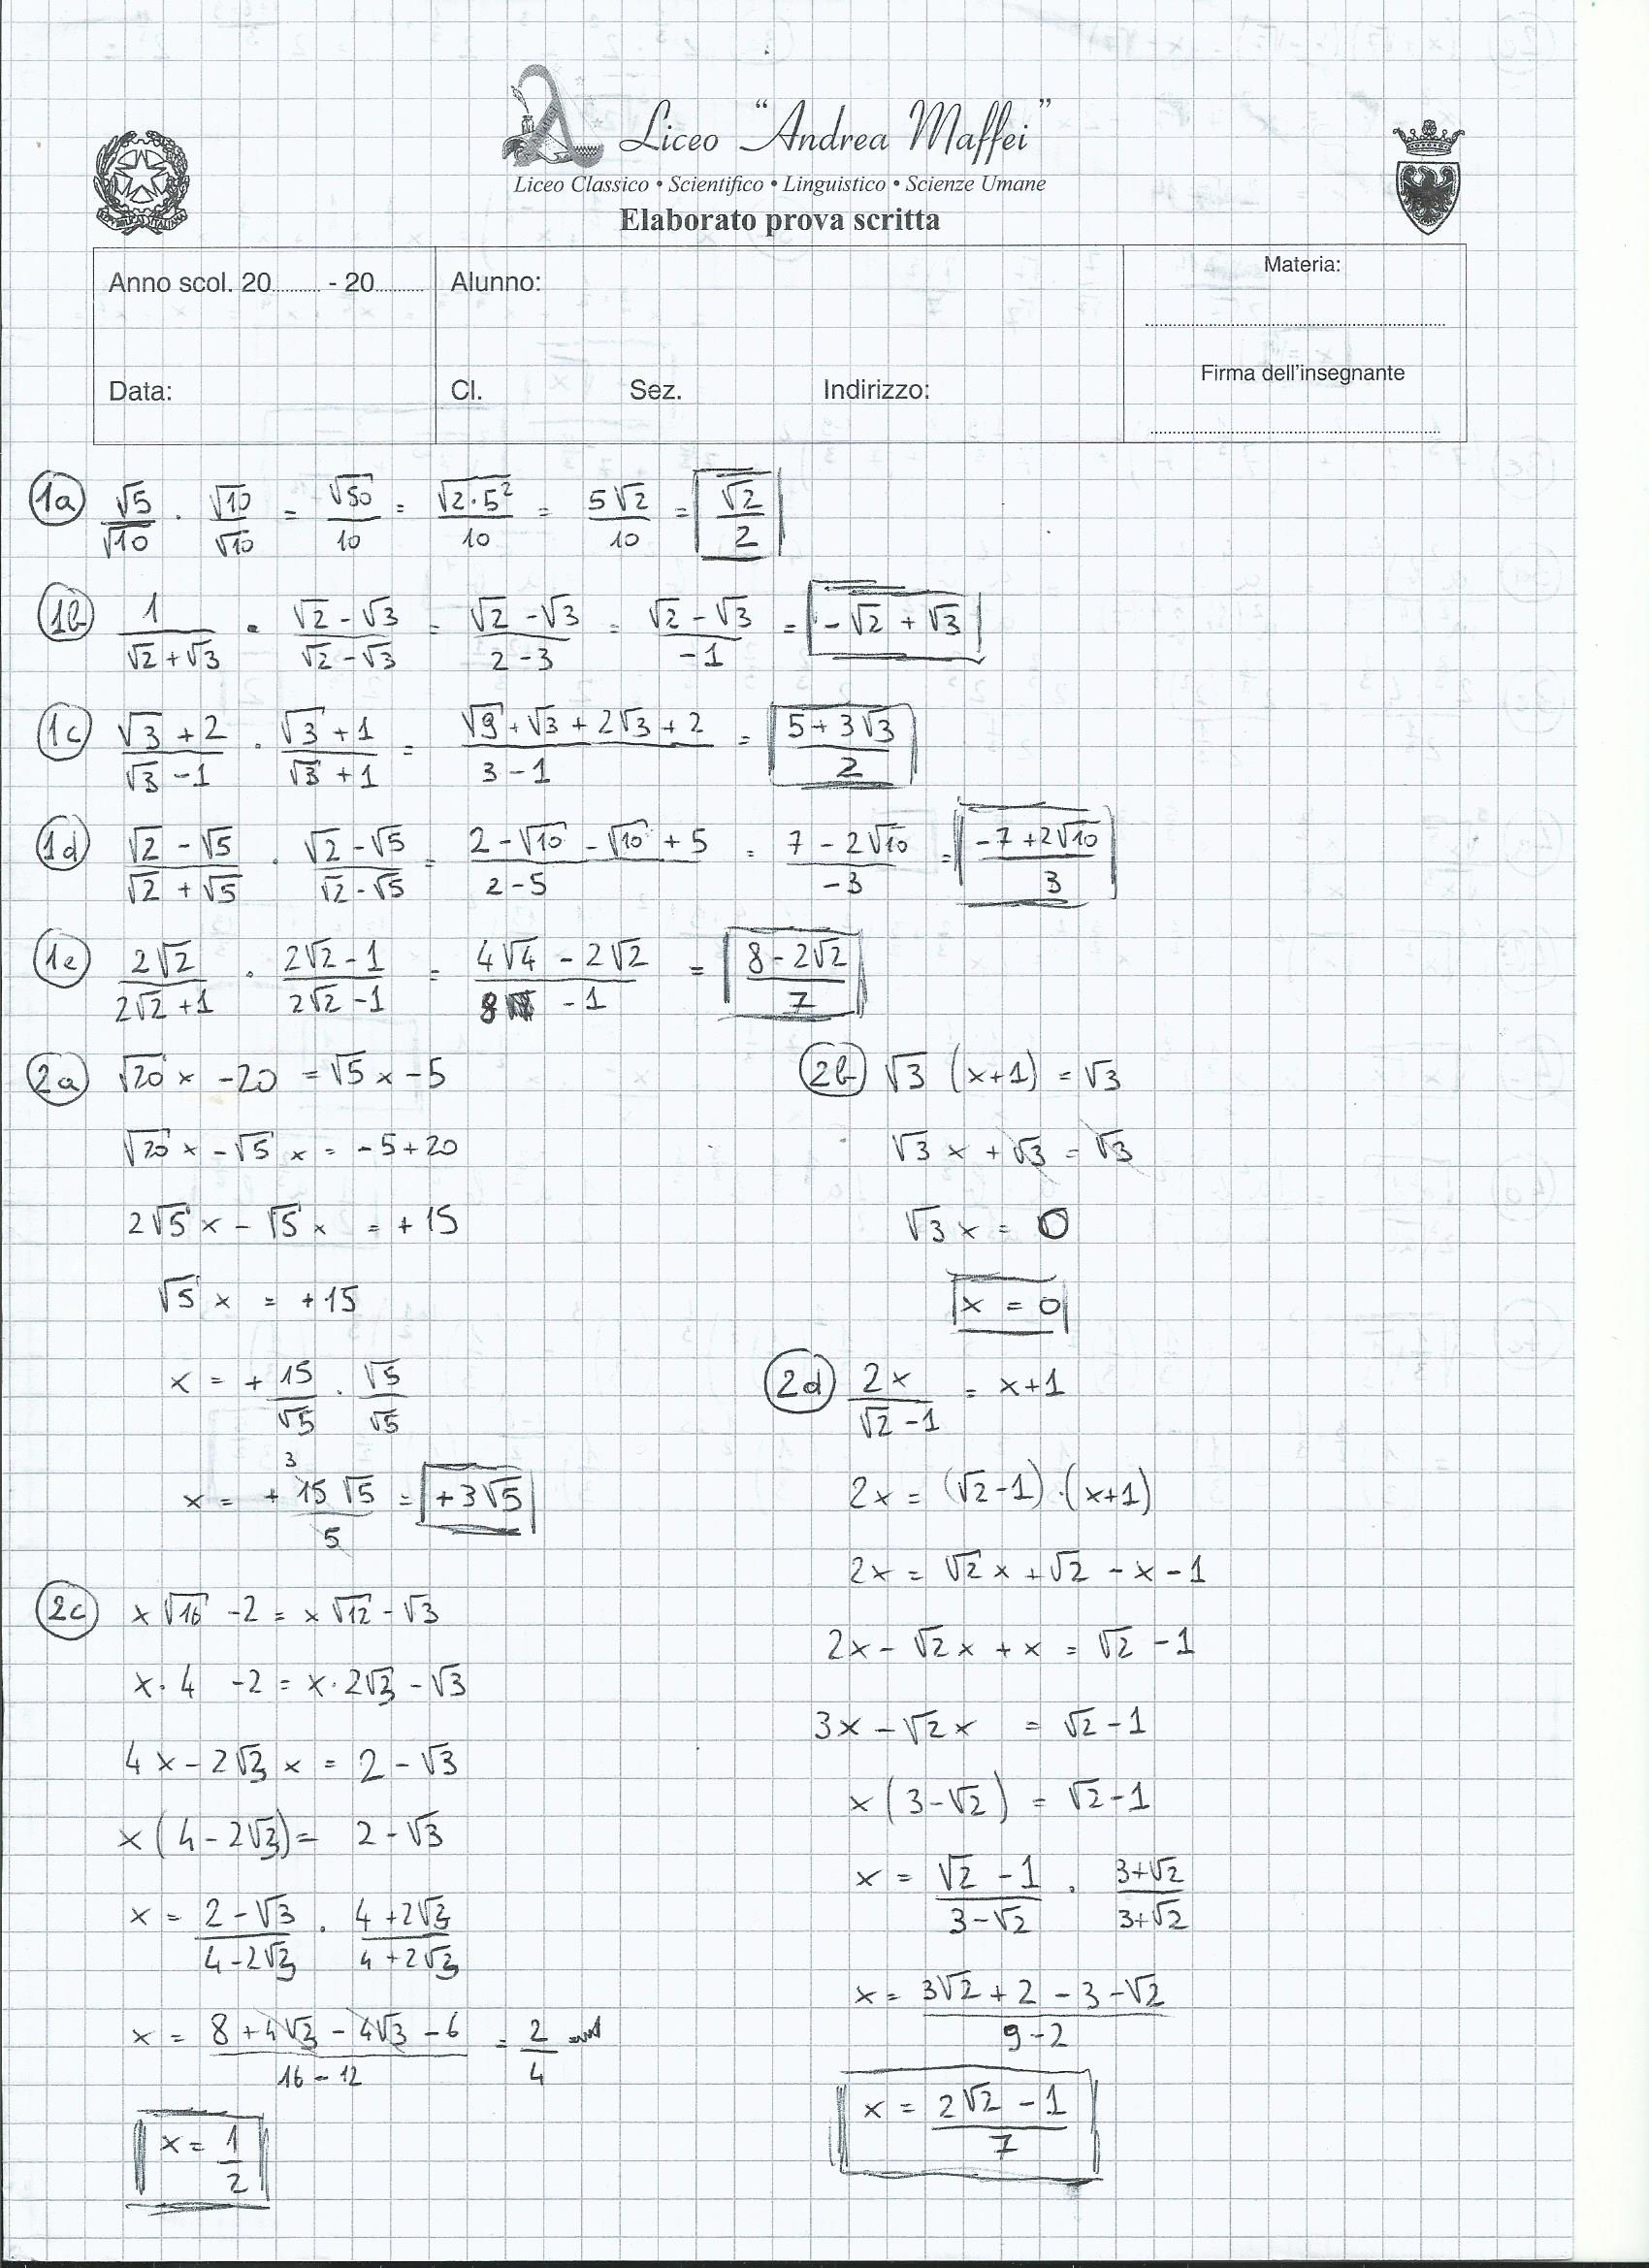 Liceo "Andrea Maffei"
Liceo Classico • Scientifico • Linguistico • Scienze Umane
Elaborato prova scritta
Anno scol. 20......... - 20......... Alunno: Materia:
Data: Cl. Sez. Indirizzo: Firma dell'insegnante
1a √5/√10 · √10/√10 = √50/10 = √(2·5²)/10 = 5√2/10 = √2/2
1b 1/(√2+√3) · (√2-√3)/(√2-√3) = (√2-√3)/(2-3) = (√2-√3)/-1 = -√2+√3
1c (√3+2)/(√3-1) · (√3+1)/(√3+1) = (√9+√3+2√3+2)/(3-1) = (5+3√3)/2
1d (√2-√5)/(√2+√5) · (√2-√5)/(√2-√5) = (2-√10-√10+5)/(2-5) = (7-2√10)/-3 = (-7+2√10)/3
1e 2√2/(2√2+1) · (2√2-1)/(2√2-1) = (4√4-2√2)/(8-1) = (8-2√2)/7
2a √20 x - 20 = √5 x - 5
√20 x - √5 x = -5+20
2√5 x - √5 x = +15
√5 x = +15
x = + 15/√5 · √5/√5
x = + 3 15√5/5 = +3√5
2b √3 (x+1) = √3
√3 x + √3 = √3
√3 x = 0
x = 0
2c x√16 - 2 = x√12 - √3
x·4 - 2 = x·2√3 - √3
4x - 2√3 x = 2 - √3
x(4-2√3) = 2-√3
x = (2-√3)/(4-2√3) · (4+2√3)/(4+2√3)
x = (8+4√3-4√3-6)/(16-12) = 2/4
x = 1/2
2d 2x/(√2-1) = x+1
2x = (√2-1)·(x+1)
2x = √2 x + √2 - x - 1
2x - √2 x + x = √2 - 1
3x - √2 x = √2 - 1
x(3-√2) = √2-1
x = (√2-1)/(3-√2) · (3+√2)/(3+√2)
x = (3√2+2-3-√2)/(9-2)
x = (2√2-1)/7